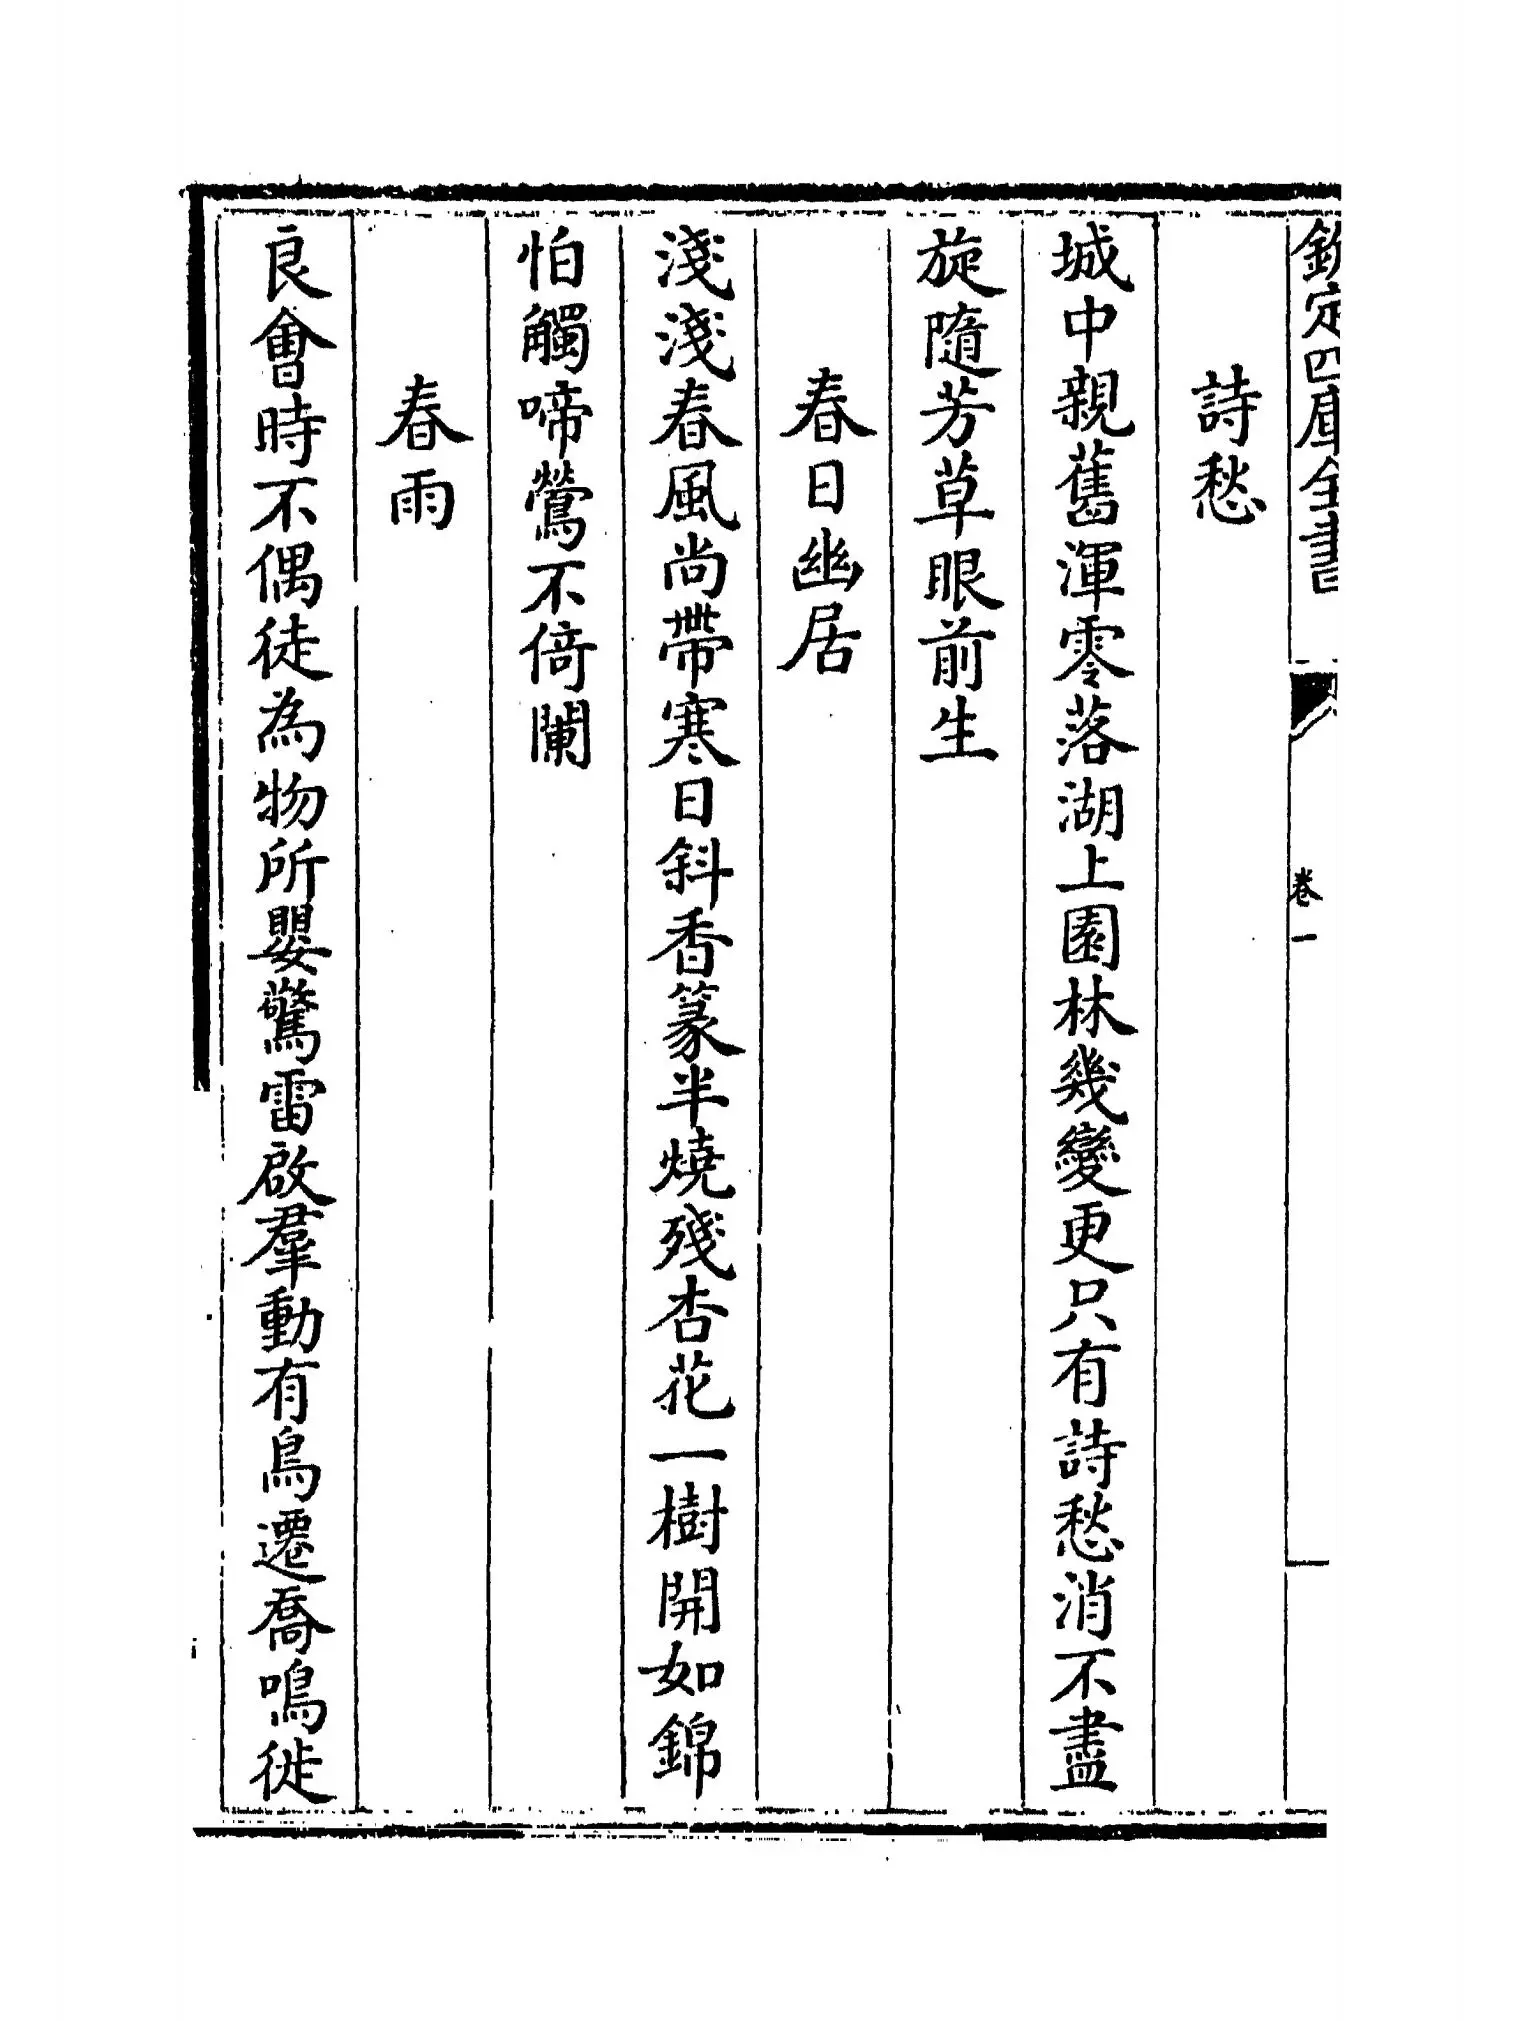 欽定四庫全書
卷一
詩愁
城中親舊渾零落湖上園林幾變更只有詩愁消不盡
旋隨芳草眼前生
春日幽居
淺淺春風尚帶寒日斜香篆半燒殘杏花一樹開如錦
怕觸啼鶯不倚闌
春雨
良會時不偶徒為物所嬰驚雷啟羣動有鳥遷喬鳴徙